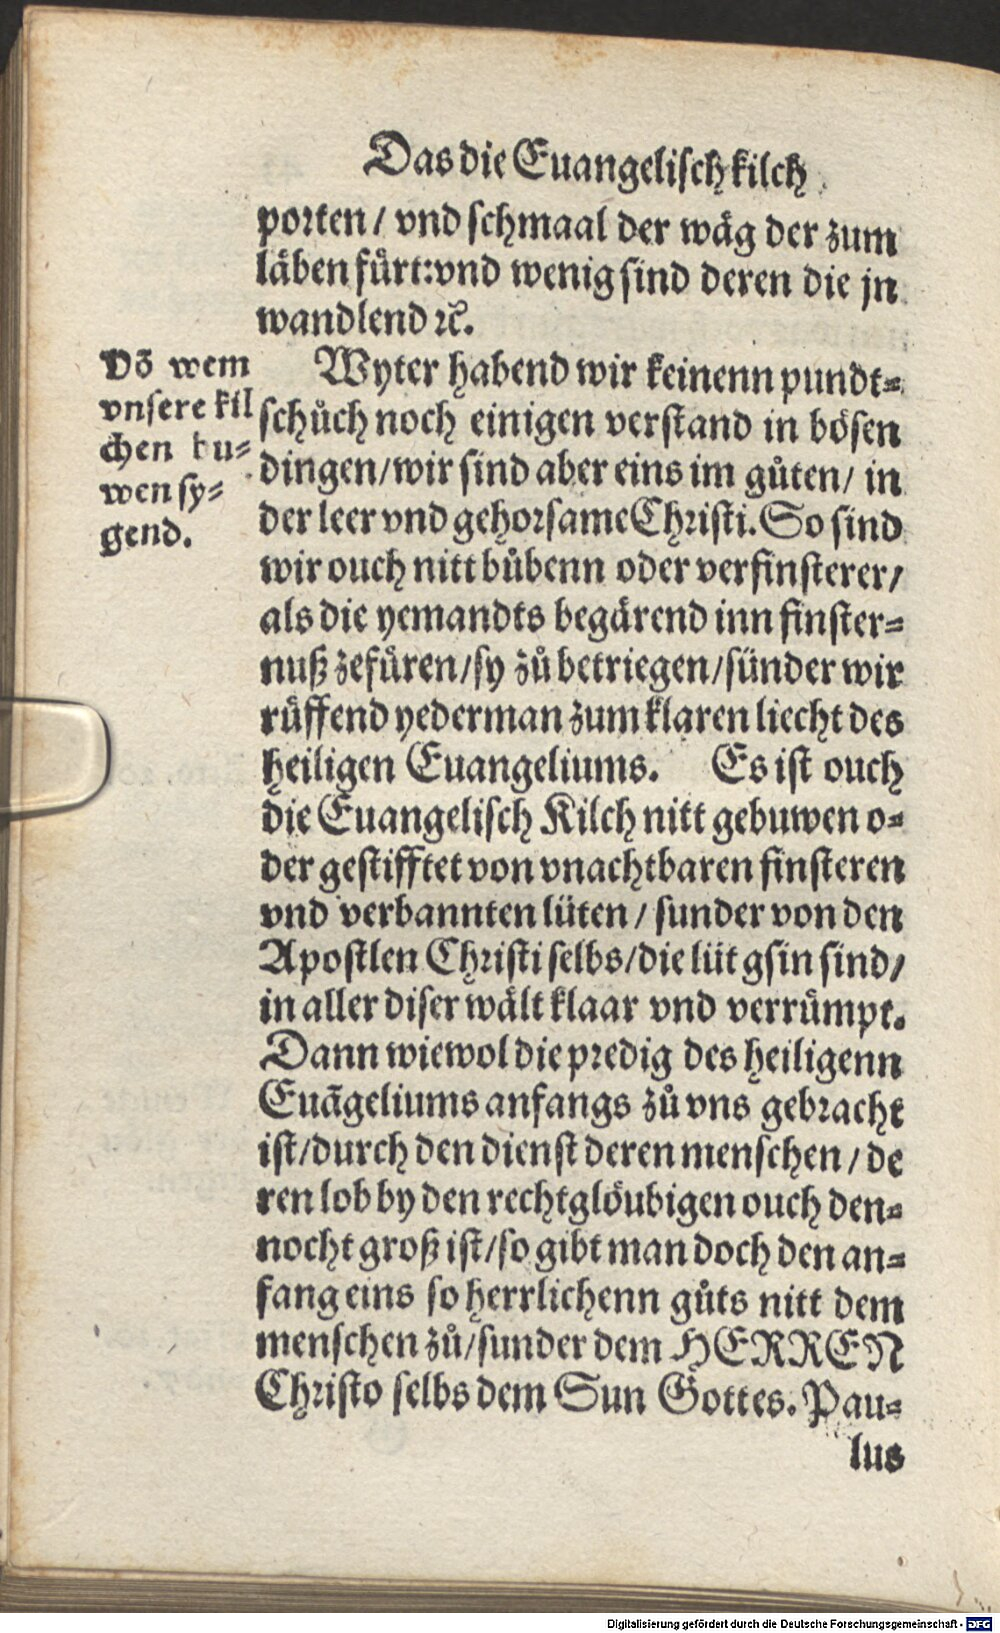 Das die Euangelisch kilch
porten / vnd schmaal der wäg der zum
läben fürt: vnd wenig sind deren die jn
wandlend ꝛc.
Võ wem
vnsere kil
chen bu⸗
wen sy⸗
gend.
Wyter habend wir keinenn pundt⸗
schůch noch einigen verstand in bösen
dingen / wir sind aber eins im gůten / in
der leer vnd gehorsame Christi. So sind
wir ouch nitt bůbenn oder verfinsterer /
als die yemandts begärend inn finster⸗
nuß zefüren / sy zů betriegen / sünder wir
rüffend yederman zum klaren liecht des
heiligen Euangeliums. Es ist ouch
die Euangelisch Kilch nitt gebuwen o⸗
der gestifftet von vnachtbaren finsteren
vnd verbannten lüten / sunder von den
Apostlen Christi selbs / die lüt gsin sind /
in aller diser wält klaar vnd verrümpt.
Dann wiewol die predig des heiligenn
Euãgeliums anfangs zů vns gebracht
ist / durch den dienst deren menschen / de
ren lob by den rechtglöubigen ouch den⸗
nocht groß ist / so gibt man doch den an⸗
fang eins so herrlichenn gůts nitt dem
menschen zů / sunder dem HERREN
Christo selbs dem Sun Gottes. Pau⸗
lus
Digitalisierung gefördert durch die Deutsche Forschungsgemeinschaft - DFG